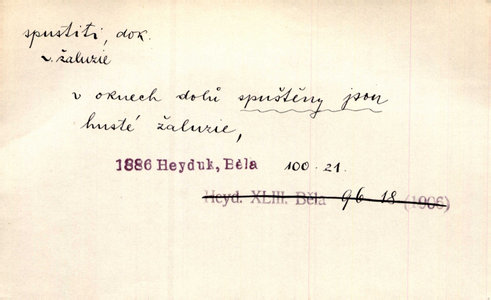 spustiti, dok.
v. žaluzie
v oknech dolů spuštěny jsou
husté žaluzie,
1886 Heyduk, Běla 100.21.
Heyd. XLIII. Běla 96 18 (1906)